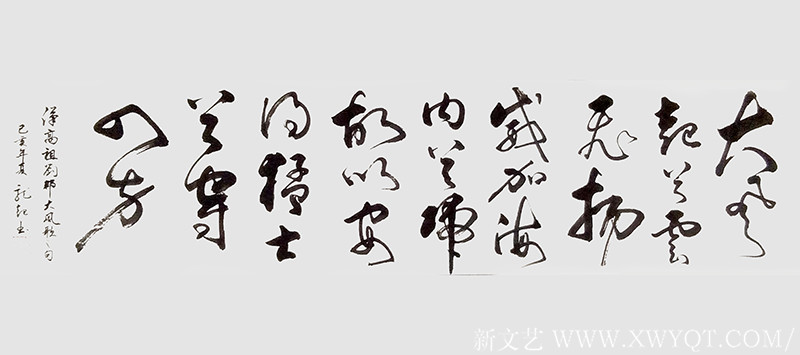 大风
起兮雲
飞扬
威加海
内兮歸
故乡安
得猛士
兮守
四方
漢高祖劉邦大风歌句
己亥年夏 龍起书
新文艺 WWW.XWYQT.COM/